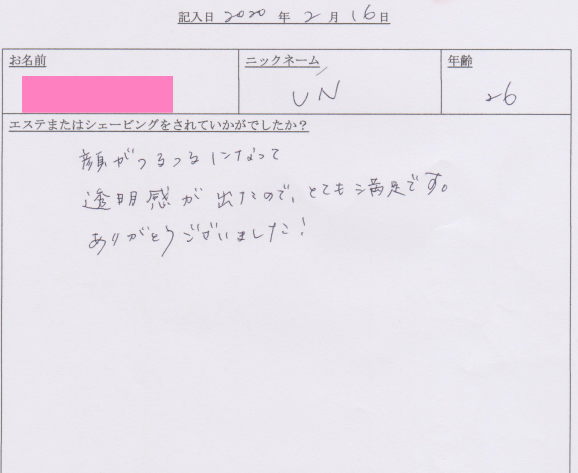 記入日 2020 年 2 月 16 日
お名前 ニックネーム 年齢
UN 26
エステまたはシェービングをされていかがでしたか？
顔がつるつるになって
透明感が出たので、とても満足です。
ありがとうございました！